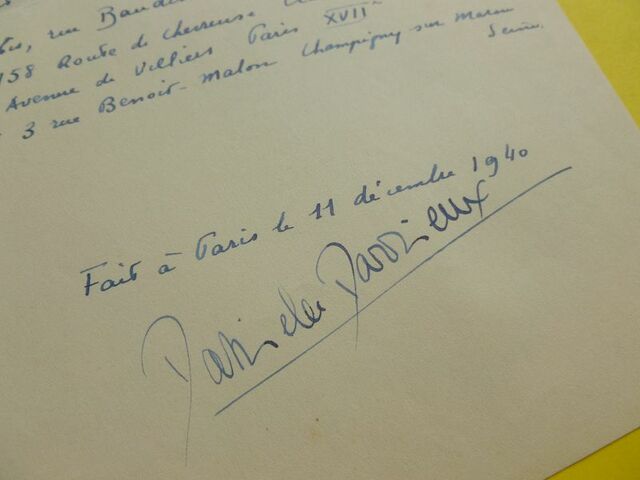 rue Baudin
158 Route de Chevreuse
Avenue de Villiers Paris XVII
3 rue Benoit-Malon Champigny sur Marne
Seine.
Fait à Paris le 11 décembre 1940
Danielle Darrieux